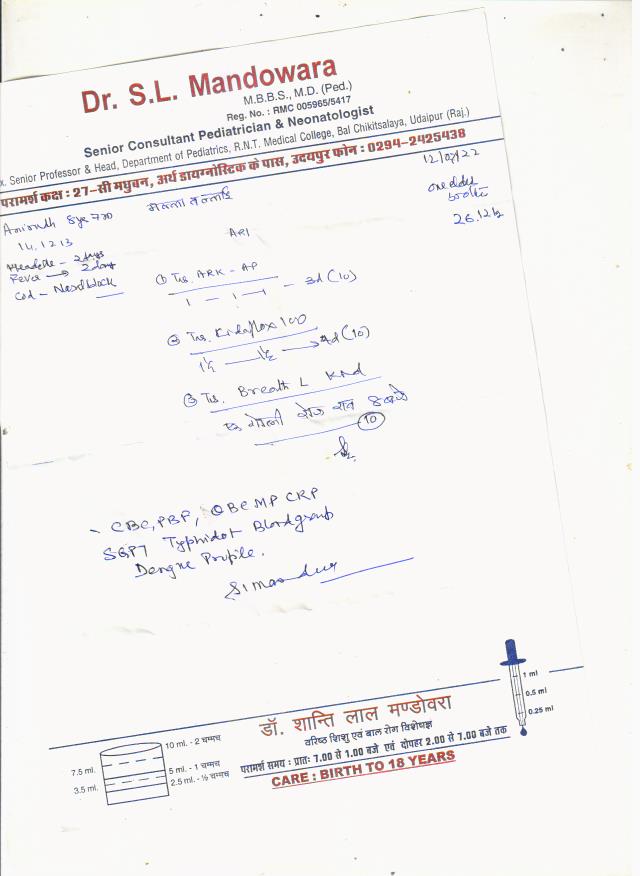 Dr. S.L. Mandowara
M.B.B.S., M.D. (Ped.)
Reg. No. : RMC 005965/5417
Senior Consultant Pediatrician & Neonatologist
x. Senior Professor & Head, Department of Pediatrics, R.N.T. Medical College, Bal Chikitsalaya, Udaipur (Raj.)
परामर्श कक्ष : 27-सी मधुबन, अर्थ डायग्नोस्टिक के पास, उदयपुर फोन : 0294-2425438
12/07/22
one elder
brother
26.12
14.12.13
ARI
Headache - 2 days
Fever → 2 days
Cold - Nasal block
① Tab. ARK - AP
1 - 1 - 1 - 3d (10)
② Tab. 100
1½ 1½ → 4d (10)
③ Tab. Breath L Kid
एक गोली रोज रात 8 बजे
10
- CBC, PBF, QBC MP CRP
SGPT Typhidot Blood group
Dengue Profile.
7.5 ml.
3.5 ml.
10 ml. - 2 चम्मच
5 ml. - 1 चम्मच
2.5 ml. - ½ चम्मच
डॉ. शान्ति लाल मण्डोवरा
वरिष्ठ शिशु एवं बाल रोग विशेषज्ञ
परामर्श समय : प्रातः 7.00 से 1.00 बजे एवं दोपहर 2.00 से 7.00 बजे तक
CARE : BIRTH TO 18 YEARS
1 ml
0.5 ml
0.25 ml